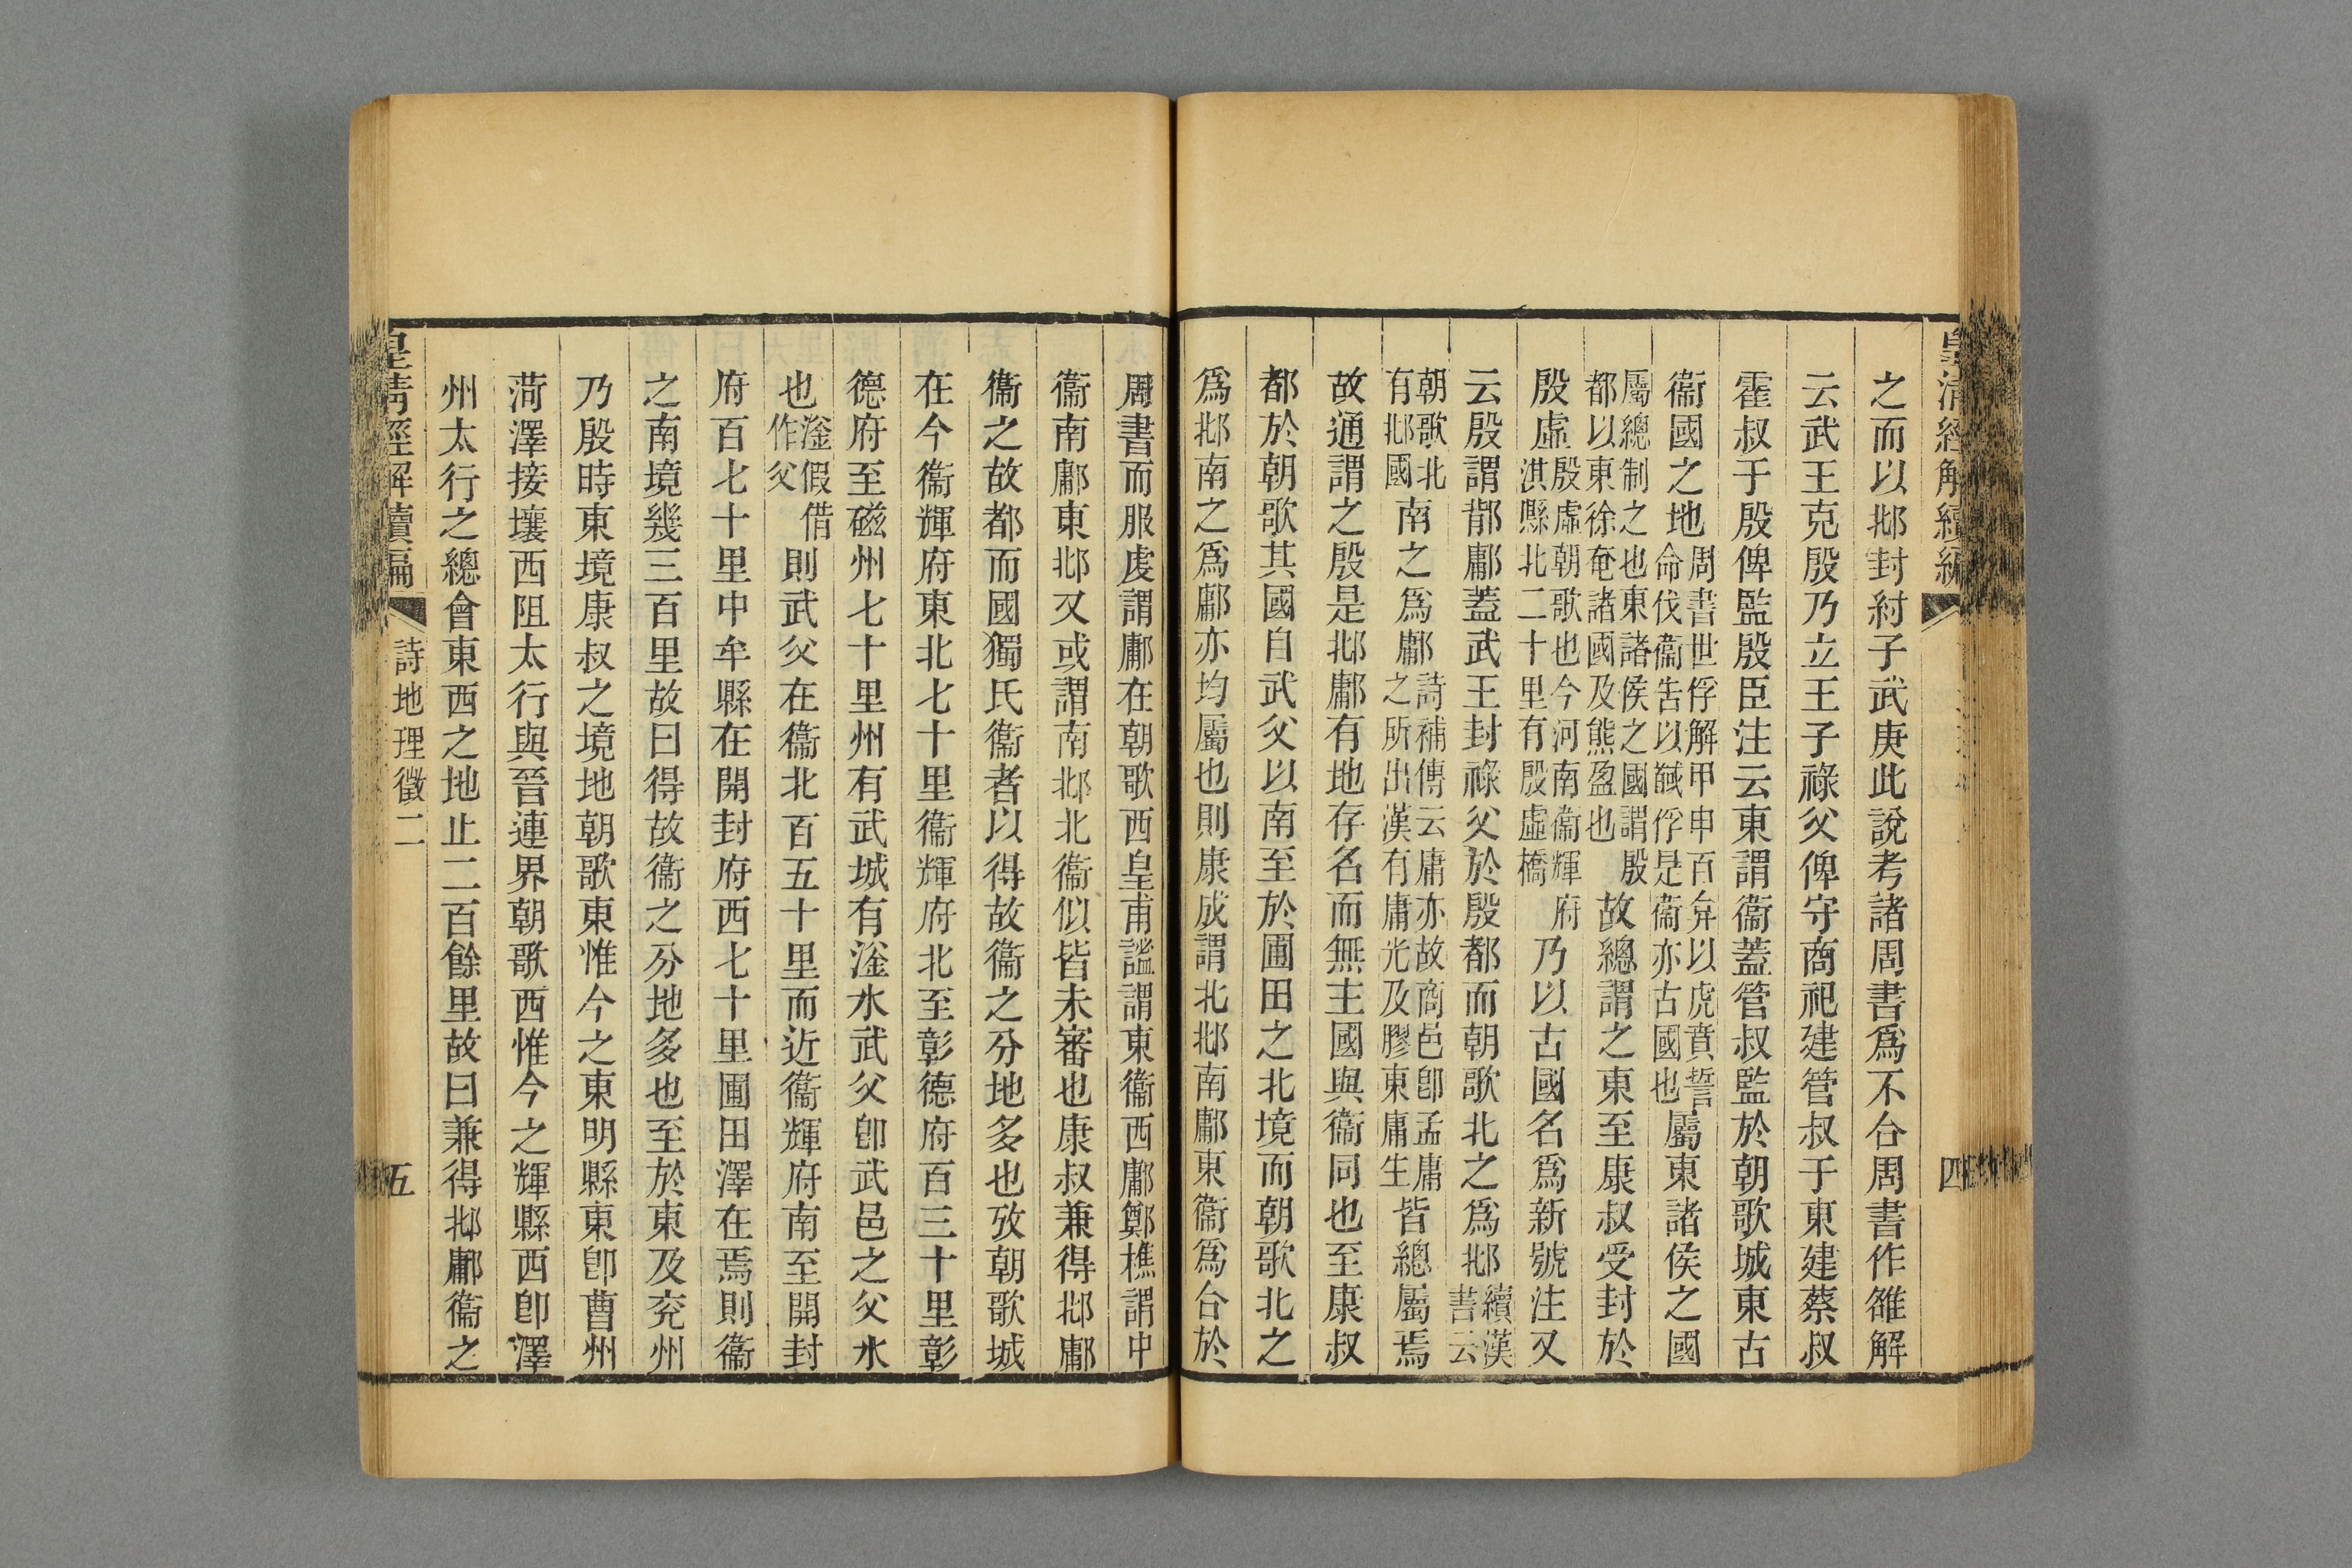 皇清經解續編
四
之而以邶封紂子武庚此說考諸周書爲不合周書作雒解
云武王克殷乃立王子祿父俾守商祀建管叔于東建蔡叔
霍叔于殷俾監殷臣注云東謂衞蓋管叔監於朝歌城東古
衞國之地周書世俘解甲申百弇以虎賁誓命伐衞告以馘俘是衞亦古國也屬東諸侯之國
屬總制之也東諸侯之國謂殷都以東徐奄諸國及熊盈也故總謂之東至康叔受封於
殷虛殷虛朝歌也今河南衞輝府淇縣北二十里有殷虛橋乃以古國名爲新號注又
云殷謂鄁鄘蓋武王封祿父於殷都而朝歌北之爲邶續漢書云
朝歌北有邶國南之爲鄘詩補傳云庸亦故商邑卽孟庸之所出漢有庸光及膠東庸生皆總屬焉
故通謂之殷是邶鄘有地存名而無主國與衞同也至康叔
都於朝歌其國自武父以南至於圃田之北境而朝歌北之
爲邶南之爲鄘亦均屬也則康成謂北邶南鄘東衞爲合於
周書而服虔謂鄘在朝歌西皇甫謐謂東衞西鄘鄭樵謂中
衞南鄘東邶又或謂南邶北衞似皆未審也康叔兼得邶鄘
衞之故都而國獨氏衞者以得故衞之分地多也攷朝歌城
在今衞輝府東北七十里衞輝府北至彰德府百三十里彰
德府至磁州七十里州有武城有滏水武父卽武邑之父水
也滏假借作父則武父在衞北百五十里而近衞輝府南至開封
府百七十里中牟縣在開封府西七十里圃田澤在焉則衞
之南境幾三百里故曰得故衞之分地多也至於東及兗州
乃殷時東境康叔之境地朝歌東惟今之東明縣東卽曹州
菏澤接壤西阻太行與晉連界朝歌西惟今之輝縣西卽澤
州太行之總會東西之地止二百餘里故曰兼得邶鄘衞之
皇清經解續編
詩地理徵二
五